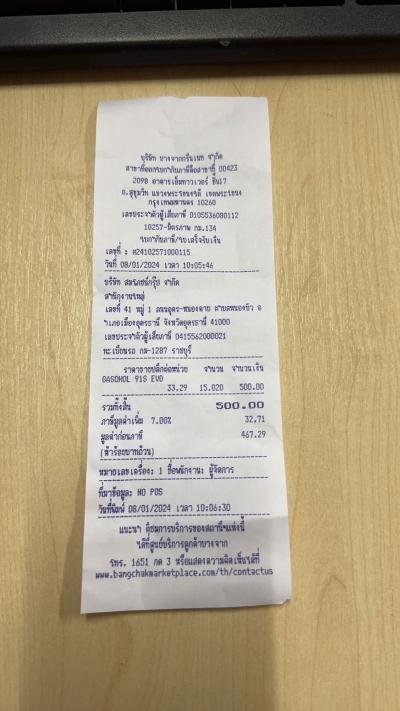 บริษัท บางจากกรีนเนท จำกัด
สาขาที่ออกใบกำกับภาษีคือสาขาที่ 00423
2098 อาคารเอ็มทาวเวอร์ ชั้น17
ถ.สุขุมวิท แขวงพระโขนงใต้ เขตพระโขนง
กรุงเทพมหานคร 10260
เลขประจำตัวผู้เสียภาษี 0105536080112
10257-มิตรภาพ กม.134
ใบกำกับภาษี/ใบเสร็จรับเงิน
เลขที่ : H24102571000115
วันที่ 08/01/2024 เวลา 10:05:46
บริษัท สมรักษ์กรุ๊ป จำกัด
สำนักงานใหญ่
เลขที่ 41 หมู่ 1 ถนนอุดร-หนองคาย ตำบลหนองบัว อ
ำเภอเมืองอุดรธานี จังหวัดอุดรธานี 41000
เลขประจำตัวผู้เสียภาษี 0415562000021
ทะเบียนรถ กม-1287 ราชบุรี
ราคาขายปลีกต่อหน่วย จำนวน จำนวนเงิน
GASOHOL 91S EVO
33.29 15.020 500.00
รวมทั้งสิ้น 500.00
ภาษีมูลค่าเพิ่ม 7.00% 32.71
มูลค่าก่อนภาษี 467.29
(ห้าร้อยบาทถ้วน)
หมายเลขเครื่อง: 1 ชื่อพนักงาน: ผู้จัดการ
ที่มาข้อมูล: NO POS
วันที่พิมพ์ 08/01/2024 เวลา 10:06:30
แนะนำ ติชมการบริการของสถานีฯแห่งนี้
ได้ที่ศูนย์บริการลูกค้าบางจาก
โทร. 1651 กด 3 หรือแสดงความคิดเห็นได้ที่
www.bangchakmarketplace.com/th/contactus